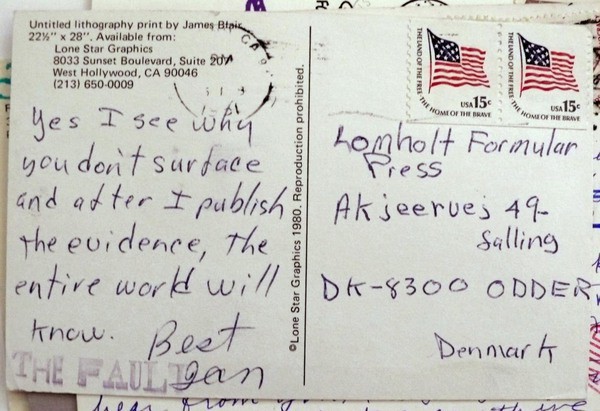 Untitled lithography print by James Blair
22½" x 28". Available from:
Lone Star Graphics
8033 Sunset Boulevard, Suite 20V
West Hollywood, CA 90046
(213) 650-0009
CA
Yes I see why
you don't surface
and after I publish
the evidence, the
entire world will
know. Best
THE FAUL Jan
©Lone Star Graphics 1980. Reproduction prohibited.
THE LAND OF THE FREE THE HOME OF THE BRAVE
USA 15c
THE LAND OF THE FREE THE HOME OF THE BRAVE
USA 15c
Lomholt Formular
Press
Akjeeruej 49-
Salling
DK-8300 ODDER
Denmark